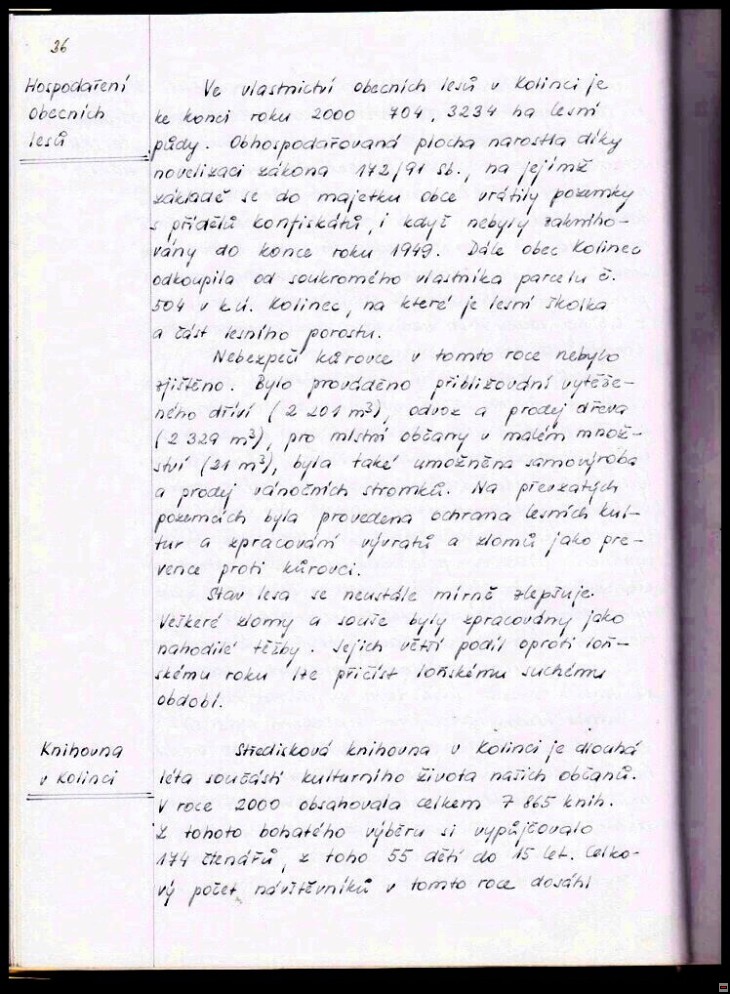 36
Hospodaření
obecních
lesů
Ve vlastnictví obecních lesů v Kolinci je
ke konci roku 2000 704, 3234 ha lesní
půdy. Obhospodařovaná plocha narostla díky
novelizaci zákona 172/91 sb., na jejímž
základě se do majetku obce vrátily pozemky
s přídělů konfiskátů, i když nebyly zakniho-
vány do konce roku 1949. Dále obec Kolinec
odkoupila od soukromého vlastníka parcelu č.
504 v k.ú. Kolinec, na které je lesní školka
a část lesního porostu.
Nebezpečí kůrovce v tomto roce nebylo
zjištěno. Bylo prováděno přibližování vytěže-
ného dříví (2 201 m³), odvoz a prodej dřeva
(2 329 m³), pro místní občany v malém množ-
ství (21 m³), byla také umožněna samovýroba
a prodej vánočních stromků. Na převzatých
pozemcích byla provedena ochrana lesních kul-
tur a zpracování vývratů a zlomů jako pre-
vence proti kůrovci.
Stav lesa se neustále mírně zlepšuje.
Veškeré zlomy a souše byly zpracovány jako
nahodilé těžby. Jejich větší podíl oproti loň-
skému roku lze přičíst loňskému suchému
období.
Knihovna
v Kolinci
Středisková knihovna v Kolinci je dlouhá
léta součástí kulturního života našich občanů.
V roce 2000 obsahovala celkem 7 865 knih.
Z tohoto bohatého výběru si vypůjčovalo
174 čtenářů, z toho 55 dětí do 15 let. Celko-
vý počet návštěvníků v tomto roce dosáhl